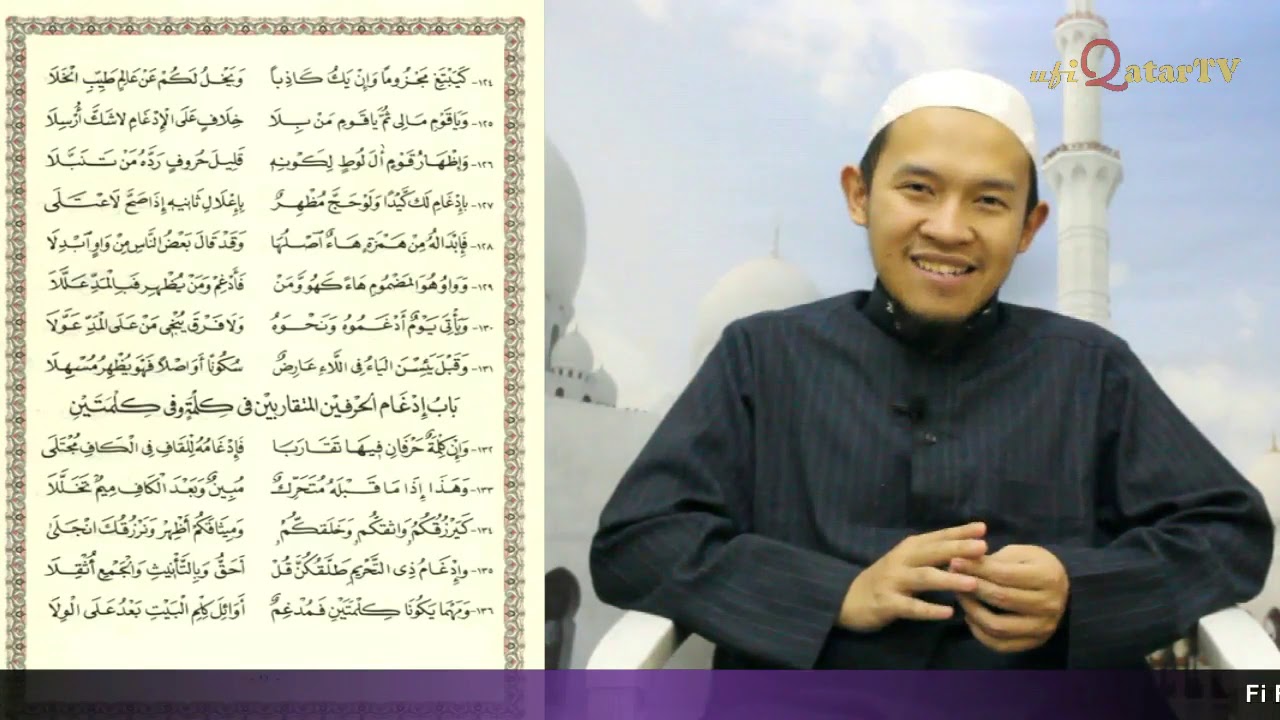 ١٢٤- كَيَبْتَغِ مَجْزُومًا وَإِنْ يَكُ كَاذِبًا وَيَخْلُ لَكُمْ عَنْ عَالِمٍ طَيِّبِ الْخَلَا
١٢٥- وَيَاقَوْمِ مَالِى ثُمَّ يَاقَوْمِ مَنْ بِلَا خِلَافٍ عَلَى الْإِدْغَامِ لَاشَكَّ أُرْسِلَا
١٢٦- وَإِظْهَارُ قَوْمٍ آلَ لُوطٍ لِكَوْنِهِ قَلِيلَ حُرُوفٍ رَدَّهُ مَنْ تَنَبَّلَا
١٢٧- بِإِدْغَامِ لَكَ كَيْدًا وَلَوْ حَجَّ مُظْهِرٌ بِإِعْلَالِ ثَانِيهِ إِذَا صَحَّ لَاعْتَلَى
١٢٨- فَإِبْدَالُهُ مِنْ هَمْزَةٍ هَاءٌ اصْلُهَا وَقَدْ قَالَ بَعْضُ النَّاسِ مِنْ وَاوٍ ابْدِلَا
١٢٩- وَوَاوُ هُوَ الْمَضْمُومِ هَاءً كَهُوَ وَّمَنْ فَأَدْغِمْ وَمَنْ يُظْهِرْ فَبِالْمَدِّ عَلَّلَا
١٣٠- وَيَأْتِىَ يَوْمٌ أَدْغَمُوهُ وَنَحْوَهُ وَلَا فَرْقَ يُنْجِى مَنْ عَلَى الْمَدِّ عَوَّلَا
١٣١- وَقَبْلَ يَئِسْنَ الْيَاءُ فِى اللَّاءِ عَارِضٌ سُكُونًا أَوَ اصْلًا فَهْوَ يُظْهِرُ مُسْهِلَا
بَابُ إِدْغَامِ الْحَرْفَيْنِ الْمُتَقَارِبَيْنِ فِى كِلْمَةٍ وَفِى كِلْمَتَيْنِ
١٣٢- وَإِنْ كِلْمَةٌ حَرْفَانِ فِيهَا تَقَارَبَا فَإِدْغَامُهُ لِلْقَافِ فِى الْكَافِ مُجْتَلَى
١٣٣- وَهَذَا إِذَا مَا قَبْلَهُ مُتَحَرِّكٌ مُبِينٌ وَبَعْدَ الْكَافِ مِيمٌ تَخَلَّلَا
١٣٤- كَيَرْزُقْكُمُ وَاثَقْكُمُ وَخَلَقكُمُ وَمِيثَاقَكُمْ أَظْهِرْ وَنَرْزُقُكَ انْجَلَى
١٣٥- وَإِدْغَامُ ذِى التَّحْرِيمِ طَلَّقَكُنَّ قُلْ أَحَقُّ وَبِالتَّأْنِيثِ وَالْجَمْعِ أُثْقِلَا
١٣٦- وَمَهْمَا يَكُونَا كِلْمَتَيْنِ فَمُدْغِمٌ أَوَائِلَ كِلْمِ الْبَيْتِ بَعْدُ عَلَى الْوِلَا
ufiQatarTV
Fi